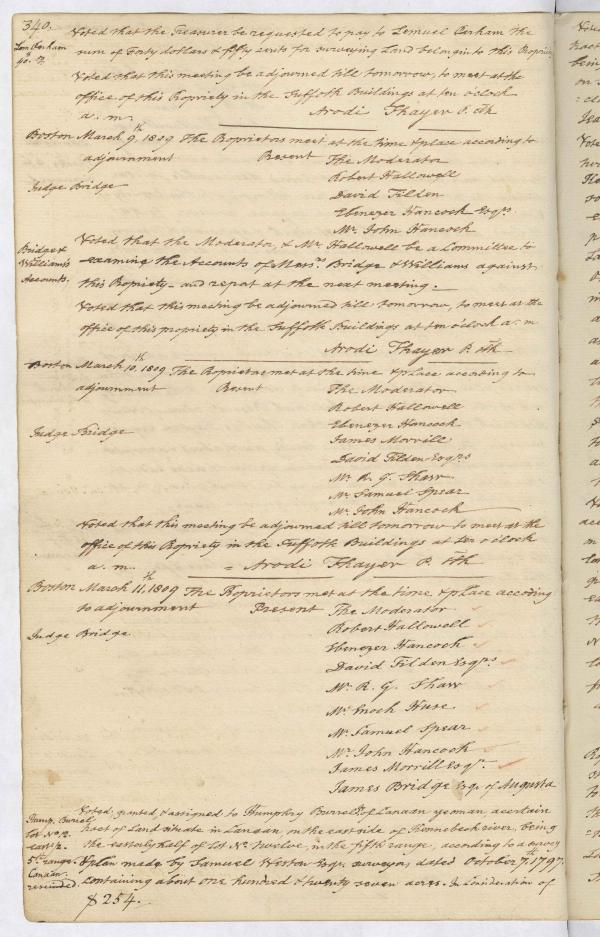 340.
Voted that the Treasurer be requested to pay to Lemuel Perham the
Lem Perham
40. 50
sum of Forty dollars & fifty cents for surveying Land belongin to this Propriety
Voted that this meeting be adjourned till tomorrow, to meet at the
office of this Propriety in the Suffolk Buildings at ten o'clock
a. m. Arodi Thayer P. Clk
Boston March 9th 1809 The Proprietors meet at the time & place according to
adjournment Present The Moderator
Robert Hallowell
Judge Bridge
David Tilden
Ebenezer Hancock Esqrs
Mr. John Hancock
Voted that the Moderator, & Mr Hallowell be a Committee to
Bridge &
Williams's
Accounts.
examine the Accounts of Messrs Bridge & Williams against
this Propriety and report at the next meeting.
Voted that this meeting be adjourned till tomorrow, to meet at the
office of this propriety in the Suffolk Buildings at ten o'clock a. m
Arodi Thayer P. Clk
Boston March 10th 1809 The Proprietors met at the time & place according to
adjournment Present The Moderator
Robert Hallowell
Ebenezer Hancock
Judge Bridge
James Morrill
David Tilden Esqrs
Mr. R. G. Shaw
Mr Samuel Spear
Mr. John Hancock
Voted that this meeting be adjourned till tomorrow to meet at the
office of this Propriety in the Suffolk Buildings at ten o'clock
a. m. = Arodi Thayer P. Clk
Boston March 11th 1809 The Proprietors met at the time & place accoding
to adjournment Present The Moderator
Robert Hallowell
Judge Bridge
Ebenezer Hancock
David Tilden Esqrs
Mr. R. G. Shaw
Mr. Enoch Huse
Mr. Samuel Spear
Mr. John Hancock
James Morrill Esqr.
James Bridge Esq. of Augusta
Voted, granted, & assigned to Humphry Burrel, of Canaan yeoman, a certain
Hump. Burrel
lot No. 12.
east ½.
5th range
Canaan.
rescinded.
tract of Land situate in Canaan, on the east side of Kennebeck river, being
the easterly half of lot No. twelve, in the fifth range, according to a survey
& plan made by Samuel Weston Esqr. surveyor, dated October 7th 1797.
containing about one hundred & twenty seven acres. In Consideration of
$254.